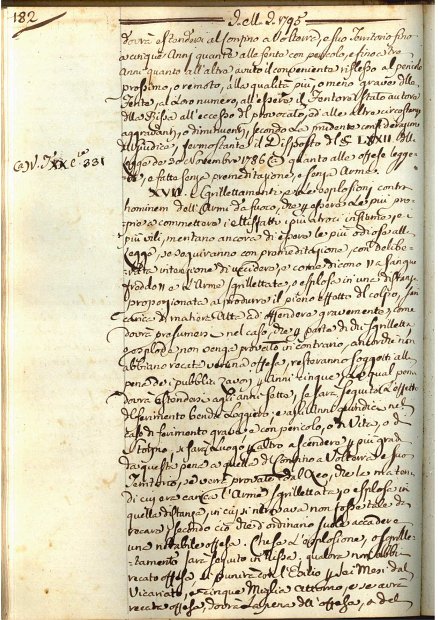 182
1795
dovrà estendersi al confino a Volterra, e suo Territorio fino
a cinque Anni quanto alle ferite con pericolo, e fino a tre
Anni quanto all'altre avuto il conveniente riflesso al pericolo
prossimo, o remoto, alla qualità più, o meno grave delle
ferite, al loro numero, all'essere il Feritore stato autore
della Rissa all'eccesso del provocato, ed alle altre circostanze
aggravanti, o diminuenti, secondo la prudente considerazione
del Giudice, fermo stante il Disposto del § LXXII della
Legge de' 30 Novembre 1786 quanto alle offese leggere
e fatte senza premeditazione, e senza Arme
Cap. XX 331
XVII. I Grillettamenti, e le esplosioni contra
hominem dell'Armi da fuoco, che per essere le più proprie
a commettere i delitti più atroci insidiosi, e i
più vili, meritano ancora di essere le più odiose alla
Legge, se seguiranno con premeditazione, con deliberata
intenzione di uccidere, e come dicono a sangue
freddo e l'Arme sgrillettata, o esplosa in una distanza
proporzionata a produrre il pieno effetto del colpo, sarà
carica di materie atte ad offendere gravemente, come
dovrà presumersi nel caso, che per parte di chi sgrilletta
o esplode non venga provato in contrario, ancorchè non
abbiano recato veruna offesa, resteranno soggetti alla
pena dei pubblici Lavori per Anni cinque, la qual pena
dovrà estendersi agli anni sette, se sarà seguito l'effetto
di ferimento benchè leggiero, e agli Anni quindici nel
caso di ferimento grave e con pericolo, o di Vita, o di
Storpio, e sarà luogo per altro a scendere per più gradi
da questa pena a quella di Confino a Volterra e suo
Territorio, se verrà provato dal Reo, che la materia
di cui era carica l'Arme sgrillettata, o esplosa in
quella distanza, in cui si ritrovava non fosse tale da
recare secondo ciò che di ordinario suole accadere
una notabile offesa. Che se l'esplosione, o sgrillettamento
sarà seguito in Rissa, qualora non abbia
recato offesa, si punirà con l'Esilio per sei Mesi dal
Vicariato, e cinque Miglia attorno, e se avrà
recato offesa, dovrà la pena dell'offesa, e del